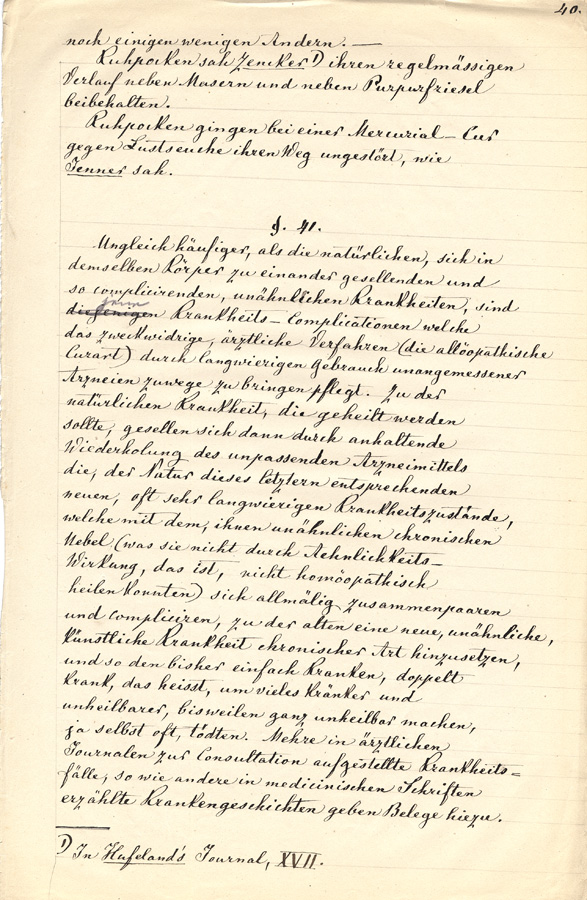 40.
noch einigen wenigen Andern. —
Kuhpocken sah Zencker 1) ihren regelmässigen
Verlauf neben Masern und neben Purpurfriesel
beibehalten.
Kuhpocken gingen bei einer Mercurial-Cur
gegen Lustseuche ihren Weg ungestört, wie
Jenner sah.
§. 41.
Ungleich häufiger, als die natürlichen, sich in
demselben Körper zu einander gesellenden und
so complicirenden, unähnlichen Krankheiten, sind
jene
diejenigen Krankheits-Complicationen welche
das zweckwidrige, ärztliche Verfahren (die allöopathische
Curart) durch langwierigen Gebrauch unangemessener
Arzneien zuwege zu bringen pflegt. Zu der
natürlichen Krankheit, die geheilt werden
sollte, gesellen sich dann durch anhaltende
Wiederholung des unpassenden Arzneimittels
die, der Natur dieses letztern entsprechenden
neuen, oft sehr langwierigen Krankheitszustände,
welche mit dem, ihnen unähnlichen chronischen
Uebel (was sie nicht durch Aehnlichkeits-
Wirkung, das ist, nicht homöopathisch
heilen konnten) sich allmälig zusammenpaaren
und compliciren, zu der alten eine neue, unähnliche,
künstliche Krankheit chronischer Art hinzusetzen,
und so den bisher einfach Kranken, doppelt
krank, das heisst, um vieles kränker und
unheilbarer, bisweilen ganz unheilbar machen,
ja selbst oft, tödten. Mehre in ärztlichen
Journalen zur Consultation aufgestellte Krankheits=
fälle, so wie andere in medicinischen Schriften
erzählte Krankengeschichten geben Belege hiezu.
1) In Hufeland's Journal, XVII.